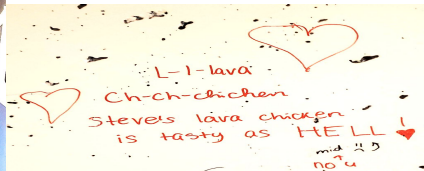 L-l-lava
Ch-ch-chicken
Steve's lava chicken
is tasty as HELL!
mid
no u